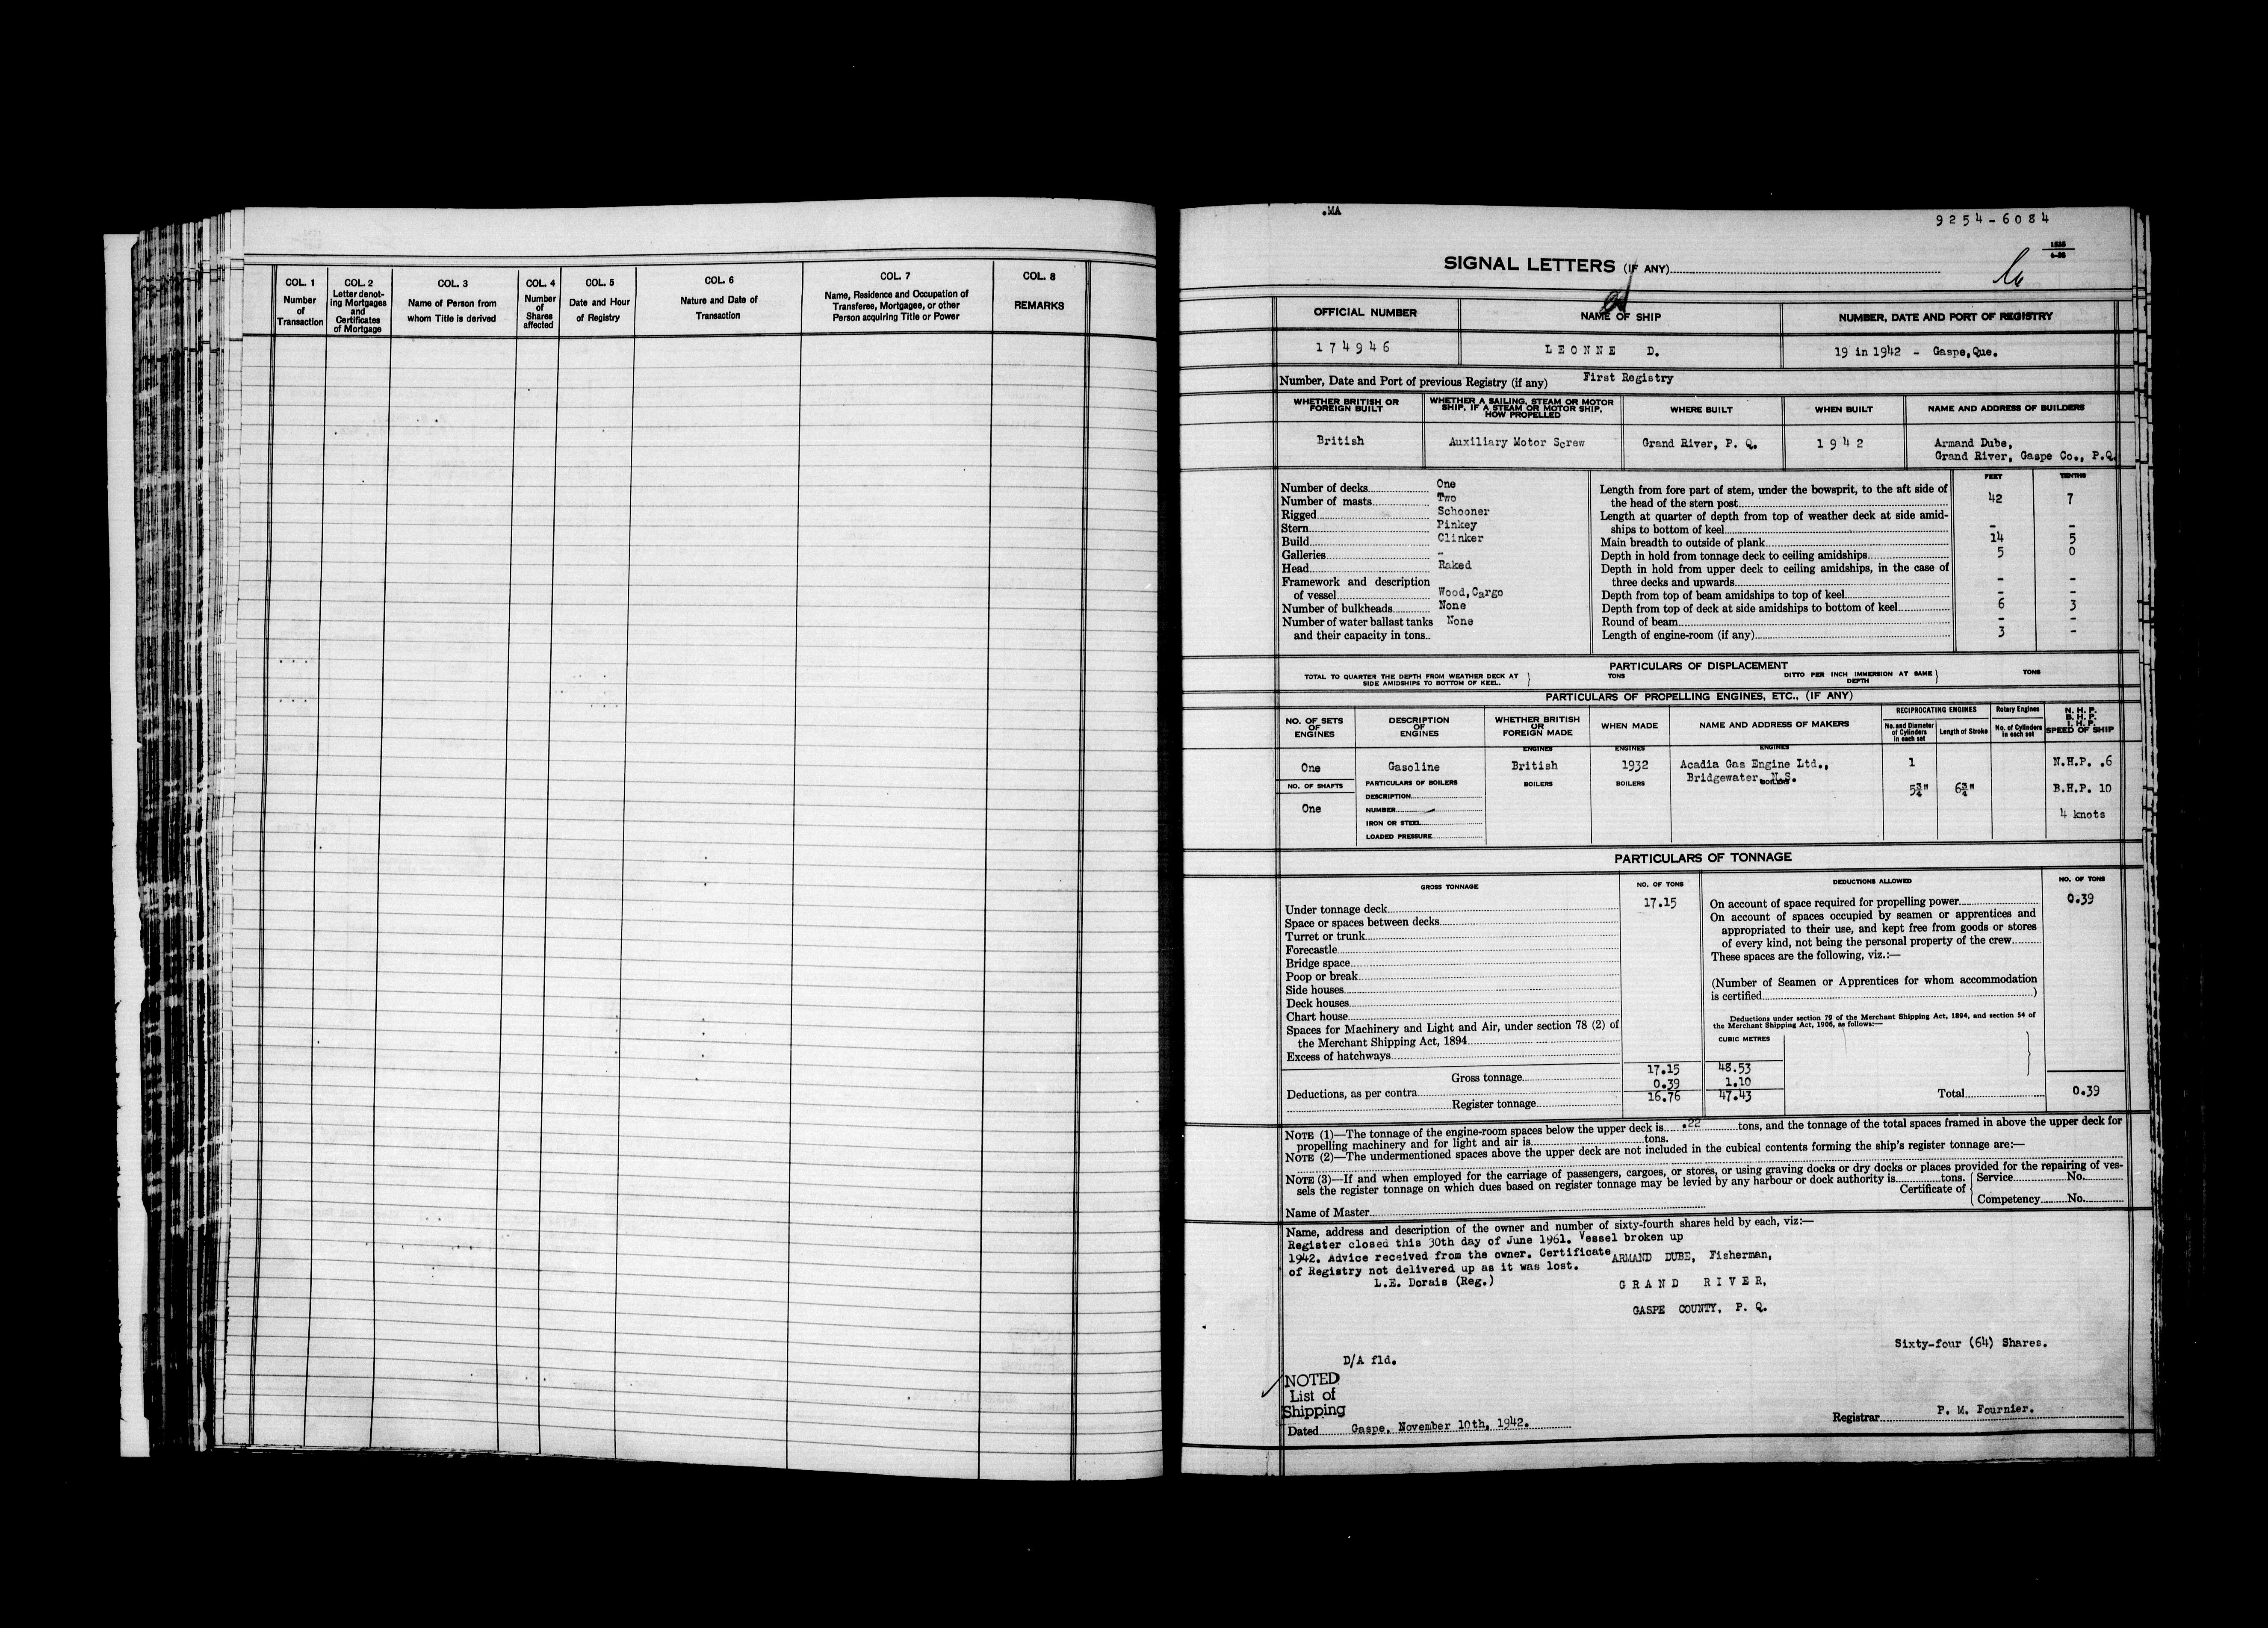 COL. 1
Number
of
Transaction
COL. 2
Letter denot-
ing Mortgages
and
Certificates
of Mortgage
COL. 3
Name of Person from
whom Title is derived
COL. 4
Number
of
Shares
affected
COL. 5
Date and Hour
of Registry
COL. 6
Nature and Date of
Transaction
COL. 7
Name, Residence and Occupation of
Transferee, Mortgagee, or other
Person acquiring Title or Power
COL. 8
REMARKS
.MA
9254-6084
SIGNAL LETTERS (IF ANY)
OFFICIAL NUMBER
NAME OF SHIP
NUMBER, DATE AND PORT OF REGISTRY
174946
LEONNE D.
19 in 1942 - Gaspe, Que.
Number, Date and Port of previous Registry (if any) First Registry
WHETHER BRITISH OR
FOREIGN BUILT
WHETHER A SAILING, STEAM OR MOTOR
SHIP. IF A STEAM OR MOTOR SHIP,
HOW PROPELLED
WHERE BUILT
WHEN BUILT
NAME AND ADDRESS OF BUILDERS
British
Auxiliary Motor Screw
Grand River, P. Q.
1942
Armand Dube,
Grand River, Gaspe Co., P.Q.
Number of decks One
Number of masts Two
Rigged Schooner
Stern Pinkey
Build Clinker
Galleries -
Head Raked
Framework and description
of vessel Wood, Cargo
Number of bulkheads None
Number of water ballast tanks None
and their capacity in tons
FEET TENTHS
Length from fore part of stem, under the bowsprit, to the aft side of
the head of the stern post 42 7
Length at quarter of depth from top of weather deck at side amid-
ships to bottom of keel - -
Main breadth to outside of plank 14 5
Depth in hold from tonnage deck to ceiling amidships 5 0
Depth in hold from upper deck to ceiling amidships, in the case of
three decks and upwards - -
Depth from top of beam amidships to top of keel - -
Depth from top of deck at side amidships to bottom of keel 6 3
Round of beam - -
Length of engine-room (if any) 3 -
PARTICULARS OF DISPLACEMENT
TOTAL TO QUARTER THE DEPTH FROM WEATHER DECK AT
SIDE AMIDSHIPS TO BOTTOM OF KEEL.
TONS
DITTO PER INCH IMMERSION AT SAME
DEPTH
TONS
PARTICULARS OF PROPELLING ENGINES, ETC., (IF ANY)
NO. OF SETS
OF
ENGINES
DESCRIPTION
OF
ENGINES
WHETHER BRITISH
OR
FOREIGN MADE
WHEN MADE
NAME AND ADDRESS OF MAKERS
RECIPROCATING ENGINES
No. and Diameter
of Cylinders
in each set
Length of Stroke
Rotary Engines
No. of Cylinders
in each set
N. H. P.
B. H. P.
I. H. P.
SPEED OF SHIP
ENGINES
ENGINES
ENGINES
One
Gasoline
British
1932
Acadia Gas Engine Ltd.,
Bridgewater, N.S.
1
N.H.P. .6
NO. OF SHAFTS
One
PARTICULARS OF BOILERS
DESCRIPTION
NUMBER
IRON OR STEEL
LOADED PRESSURE
BOILERS
BOILERS
BOILERS
5¾"
6¾"
B.H.P. 10
4 knots
PARTICULARS OF TONNAGE
GROSS TONNAGE
NO. OF TONS
Under tonnage deck 17.15
Space or spaces between decks
Turret or trunk
Forecastle
Bridge space
Poop or break
Side houses
Deck houses
Chart house
Spaces for Machinery and Light and Air, under section 78 (2) of
the Merchant Shipping Act, 1894
Excess of hatchways
Gross tonnage 17.15 48.53
Deductions, as per contra 0.39 1.10
Register tonnage 16.76 47.43
DEDUCTIONS ALLOWED
NO. OF TONS
On account of space required for propelling power 0.39
On account of spaces occupied by seamen or apprentices and
appropriated to their use, and kept free from goods or stores
of every kind, not being the personal property of the crew
These spaces are the following, viz.:—
(Number of Seamen or Apprentices for whom accommodation
is certified )
Deductions under section 79 of the Merchant Shipping Act, 1894, and section 54 of
the Merchant Shipping Act, 1906, as follows:—
CUBIC METRES
Total 0.39
NOTE (1)—The tonnage of the engine-room spaces below the upper deck is .22 tons, and the tonnage of the total spaces framed in above the upper deck for
propelling machinery and for light and air is tons.
NOTE (2)—The undermentioned spaces above the upper deck are not included in the cubical contents forming the ship's register tonnage are:—
NOTE (3)—If and when employed for the carriage of passengers, cargoes, or stores, or using graving docks or dry docks or places provided for the repairing of ves-
sels the register tonnage on which dues based on register tonnage may be levied by any harbour or dock authority is tons.
Certificate of
Service No.
Competency No.
Name of Master
Name, address and description of the owner and number of sixty-fourth shares held by each, viz:—
Register closed this 30th day of June 1961. Vessel broken up
1942. Advice received from the owner. Certificate
of Registry not delivered up as it was lost.
L.E. Dorais (Reg.)
ARMAND DUBE, Fisherman,
GRAND RIVER,
GASPE COUNTY, P. Q.
Sixty-four (64) Shares.
D/A fld.
NOTED
List of
Shipping
Dated Gaspe, November 10th, 1942.
Registrar P. M. Fournier.